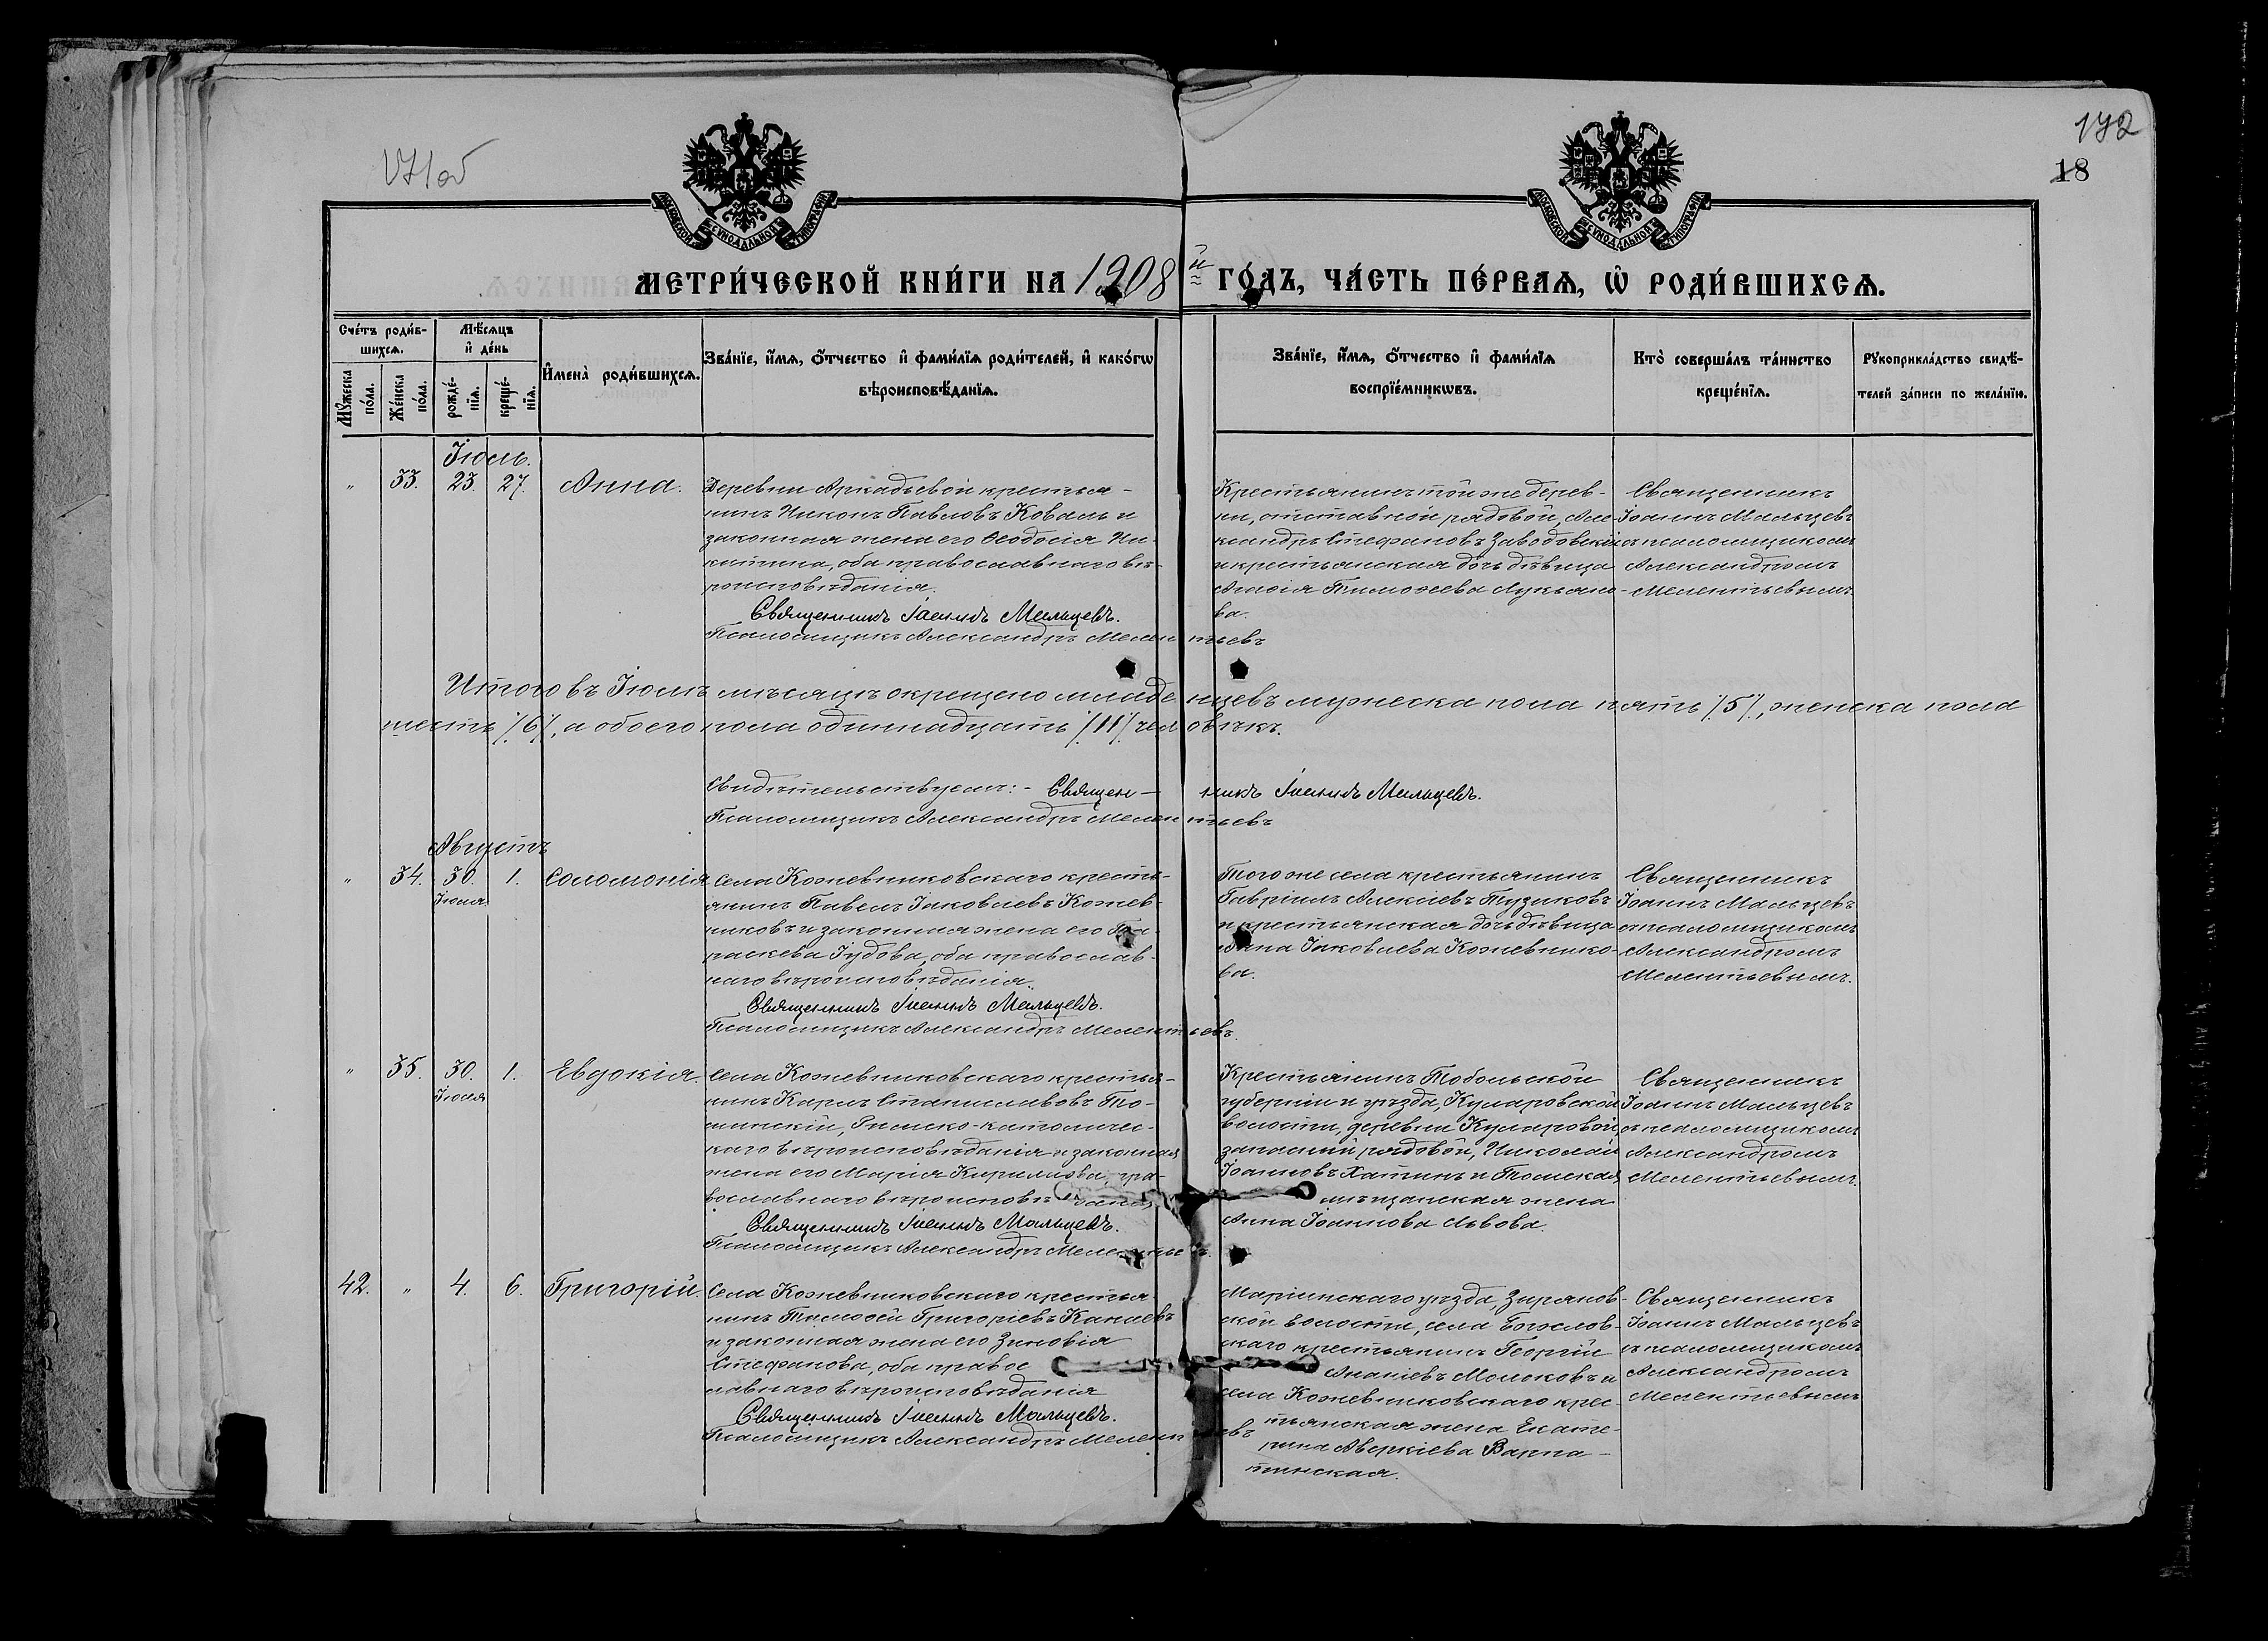 172
18
МОСКОВСКОЙ СѴНОДАЛЬНОЙ ТИПОГРАФІИ
МОСКОВСКОЙ СѴНОДАЛЬНОЙ ТИПОГРАФІИ
МЕТРИ́ЧЕСКОЙ КНИ́ГИ НА 1908й ГО́ДЪ, ЧА́СТЬ ПЕ́РВАѦ, Ѡ҆ РОДИ́ВШИХСѦ.
Сче́тъ роди́в-
шихсѧ.
Мꙋ́жеска по́ла.
Же́нска по́ла.
Мѣ́сѧцъ
и҆ де́нь
рожде́-
нїѧ.
креще́-
нїѧ.
И҆мена̀ роди́вшихсѧ.
Зва́нїе, и҆́мѧ, ѻ҆́тчество и҆ фами́лїѧ роди́телей, и҆ како́гѡ
вѣроисповѣ́данїѧ.
Зва́нїе, и҆́мѧ, ѻ҆́тчество и҆ фами́лїѧ
воспрїе́мникѡвъ.
Кто̀ соверша́лъ та́инство
креще́нїѧ.
Рꙋкоприкла́дство свидѣ́-
телей за́писи по жела́нїю.
Іюль.
" 33. 23. 27. Анна.
Деревни Аркадьевой крестья-
нинъ Никонъ Павловъ Коваль и
законная жена его Ѳеодосія Ни-
китина, оба православнаго вѣ-
роисповѣданія.
Священникъ Іоаннъ Мальцевъ.
Псаломщикъ Александръ Мелентьевъ
Крестьянинъ той же дерев-
ни, отставной рядовой, Але-
ксандръ Стефановъ Заводовскій
и крестьянская дочь дѣвица
Тимоѳеева Лукьяно-
ва.
Священникъ
Іоаннъ Мальцевъ
съ псаломщикомъ
Александромъ
Мелентьевымъ.
Итого въ Іюлѣ мѣсяцѣ окрещено младенцевъ мужеска пола пять /5/, женска пола
шесть /6/, а обоего пола одиннадцать /11/ человѣкъ.
Свидѣтельствуемъ:- Священ-никъ Іоаннъ Мальцевъ.
Псаломщикъ Александръ Мелентьевъ
Августъ
" 34. 30. 1. Соломонія
Іюля
Села Кожевниковскаго кресть-
янинъ Павелъ Іаковлевъ Кожев-
никовъ и законная жена его Па-
раскева Іудова, оба православ-
наго вѣроисповѣданія.
Священникъ Іоаннъ Мальцевъ.
Псаломщикъ Александръ Мелентьевъ.
Того же села крестьянинъ
Гавріилъ Алексіевъ Тузиковъ
и крестьянская дочь дѣвица
Анна Іаковлева Кожевнико-
ва.
Священникъ
Іоаннъ Мальцевъ
съ псаломщикомъ
Александромъ
Мелентьевымъ.
" 35. 30. 1. Евдокія.
Іюля
Села Кожевниковскаго крестья-
нинъ Карлъ Станиславовъ То-
шинскій, Римско-католичес-
каго вѣроисповѣданія и законная
жена его Марія Кирилова, пра-
вославнаго вѣроисповѣданія
Священникъ Іоаннъ Мальцевъ.
Псаломщикъ Александръ Мелентьевъ.
Крестьянинъ Тобольской
губерніи и уѣзда, Куларовской
волости, деревни Куларовой,
запасный рядовой, Николай
Іоанновъ Хатинъ и Томская
мѣщанская жена
Анна Іоаннова Львова.
Священникъ
Іоаннъ Мальцевъ
съ псаломщикомъ
Александромъ
Мелентьевымъ.
42. " 4. 6. Григорій.
Села Кожевниковскаго крестья-
нинъ Тимоѳей Григоріевъ Канаевъ
и законная жена его Зиновія
Стефанова, оба правос
лавнаго вѣроисповѣданія
Священникъ Іоаннъ Мальцевъ.
Псаломщикъ Александръ Мелентьевъ
Маріинскаго уѣзда, Зырянов-
ской волости, села Богослов-
скаго крестьянинъ Георгій
Ананіевъ Молоковъ и
села Кожевниковскаго крес-
тьянская жена Екате-
рина Аверкіева Варпа-
тинская.
Священникъ
Іоаннъ Мальцевъ
съ псаломщикомъ
Александромъ
Мелентьевымъ